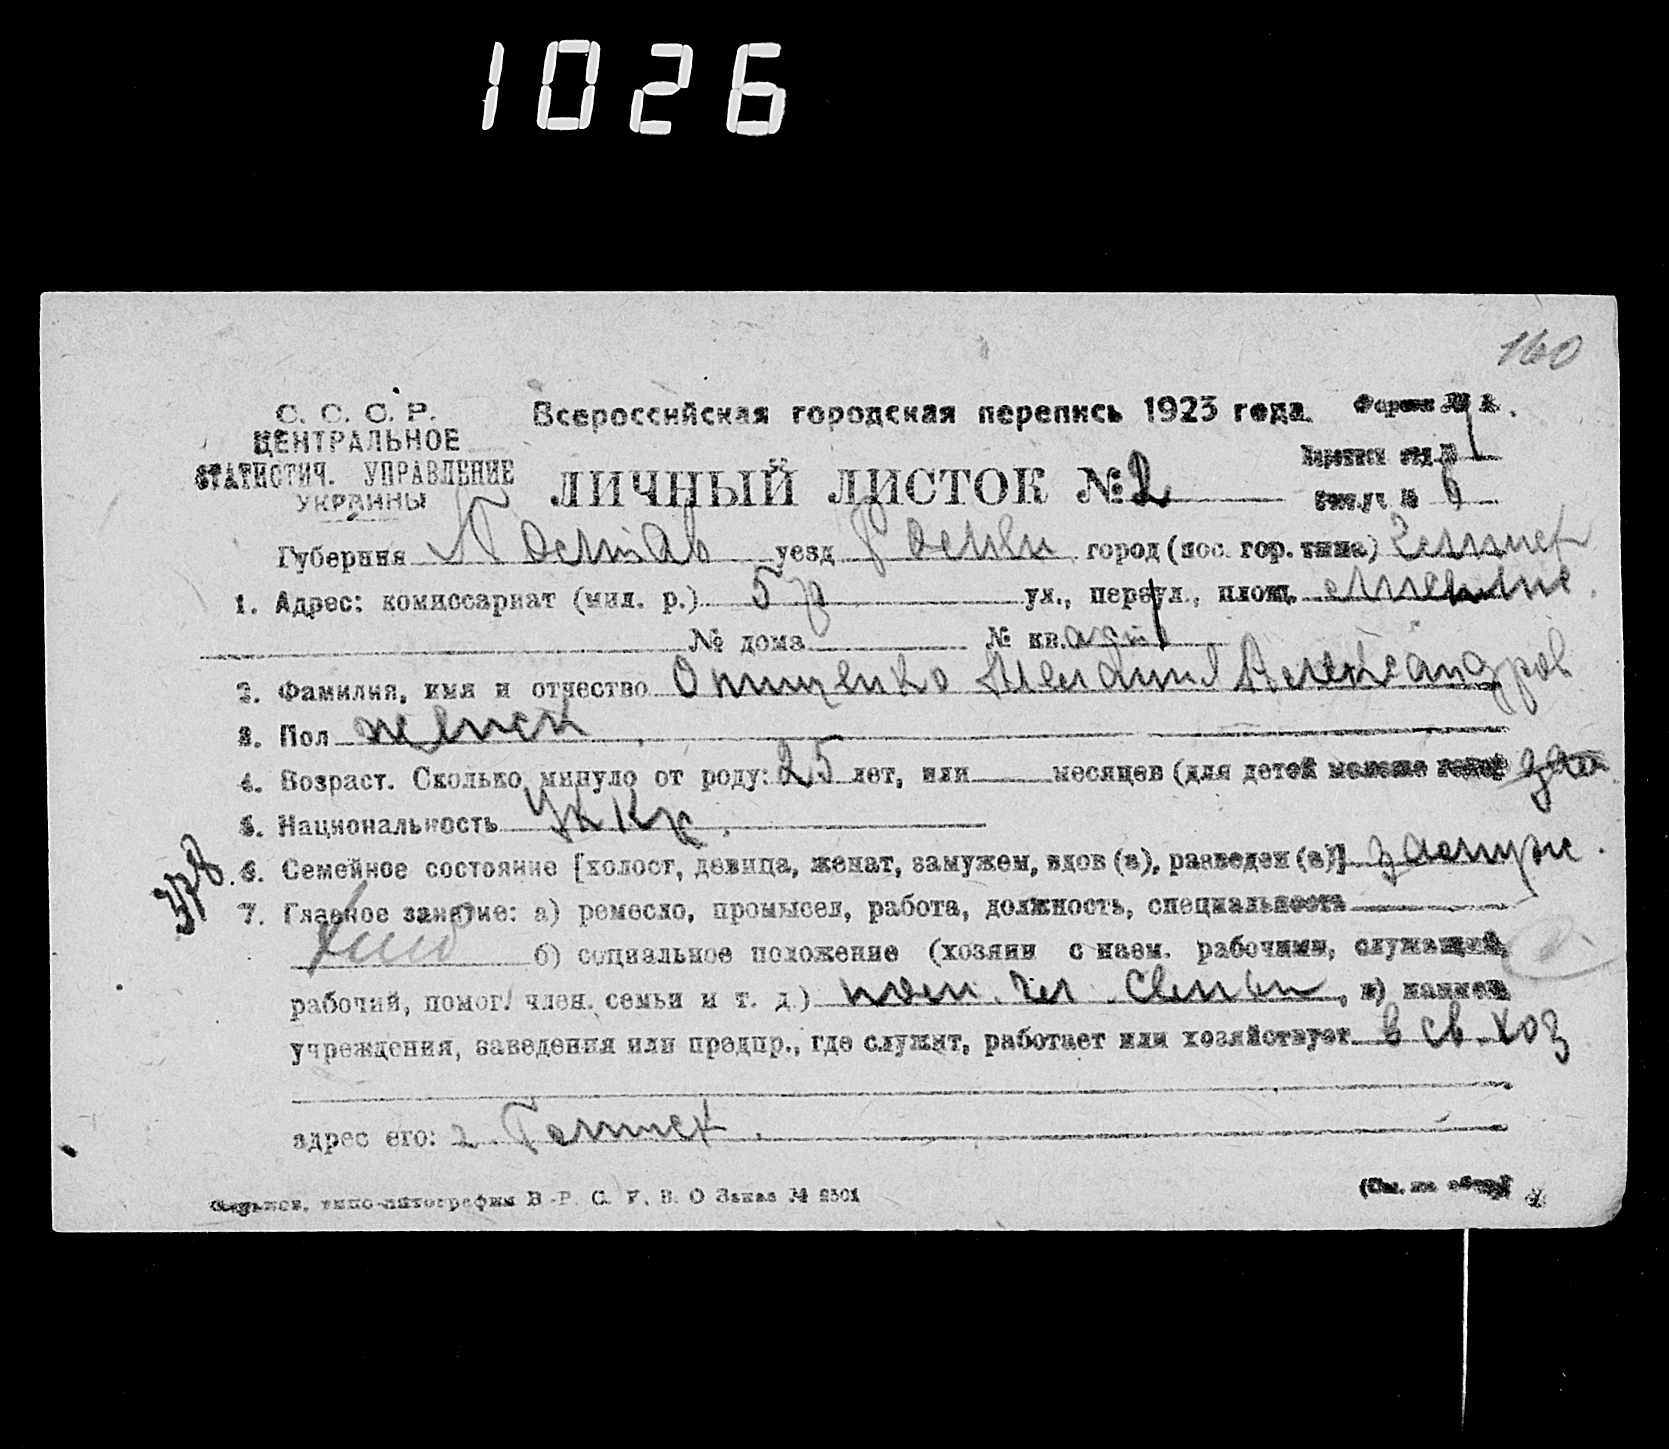 1026
160
С. С. С. Р.
ЦЕНТРАЛЬНОЕ
СТАТИСТИЧ. УПРАВЛЕНИЕ
УКРАИНЫ
Всероссийская городская перепись 1923 года.
Форма №
ЛИЧНЫЙ ЛИСТОК № 2
Губерния Полтав уезд Ромен город (пос. гор. типа)
1. Адрес: комиссариат (мил. р.) 5 р ул., переул., площ.
№ дома № кв.
2. Фамилия, имя и отчество Онищенко Александров
3. Пол женск
4. Возраст. Сколько минуло от роду: 25 лет, или месяцев (для детей
5. Национальность Укр
6. Семейное состояние [холост, девица, женат, замужем, вдов (а), разведен (а)] замуж.
7. Главное занятие: а) ремесло, промысел, работа, должность, специальность
б) социальное положение (хозяин с наем. рабочими, служащий,
рабочий, помог. член. семьи и т. д.) пом. чл. семьи, в) наимен
учреждения, заведения или предпр., где служит, работает или хозяйствует в св. хоз
адрес его:
В. Р. С. У. В. О Заказ № 2301
(См. на